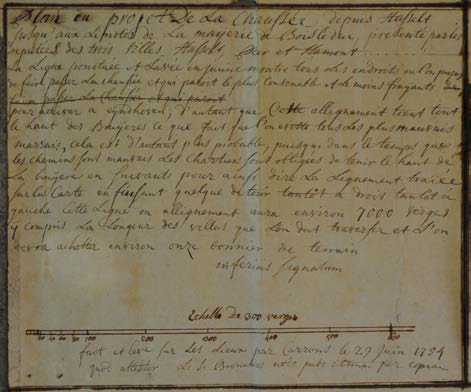 Plan ou projet De La Chaussée depuis Hasselt
jusqu'aux Limites de La mayerie de Boisleduc, présenté par les
députées des trois villes, Hasselt, Peer et Hamont
La Ligne ponctuée et Lavée en jaune montre tous Les endroits ou L'on propose
de faire passer La chaussée et qui paroit le plus Convenable et le moins frayants
faire passer La Chaussée et qui paroit
pour arriver a Eyndhoven, d'autant que Cette allignement tient tout
le haut des Bruyeres ce que fait que l'on evitte tous Les plus mauvais
marais, cela est d'autant plus probable, puisque dans le temps que
les chemins sont mauvais Les Chartiers sont obligés de tenir le haut de
La bruyere en suivants pour ainsi dire La Lignement tracée
sur la Carte en faisant quelque detour tantôt a droit tantôt à
gauche Cette Ligne ou allignement aura environ 7000 verges
y compris La Longeur des villes que L'on doit traverser et L'on
devra achetter environ onze bonnier de terrain
inferius signatum
Echelle de 300 verges
100 200 300 400 500
fait et levé sur Les Lieux par Carrons le 29 juin 1754
quod attestor